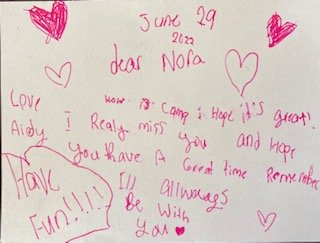 June 29
2022
dear Nora
How is camp i Hope it's great!
I Realy miss you and Hope
you have a Great time Remember
I'll allwaygs
Be With
you
Love
Aidy
Have
Fun!!!!